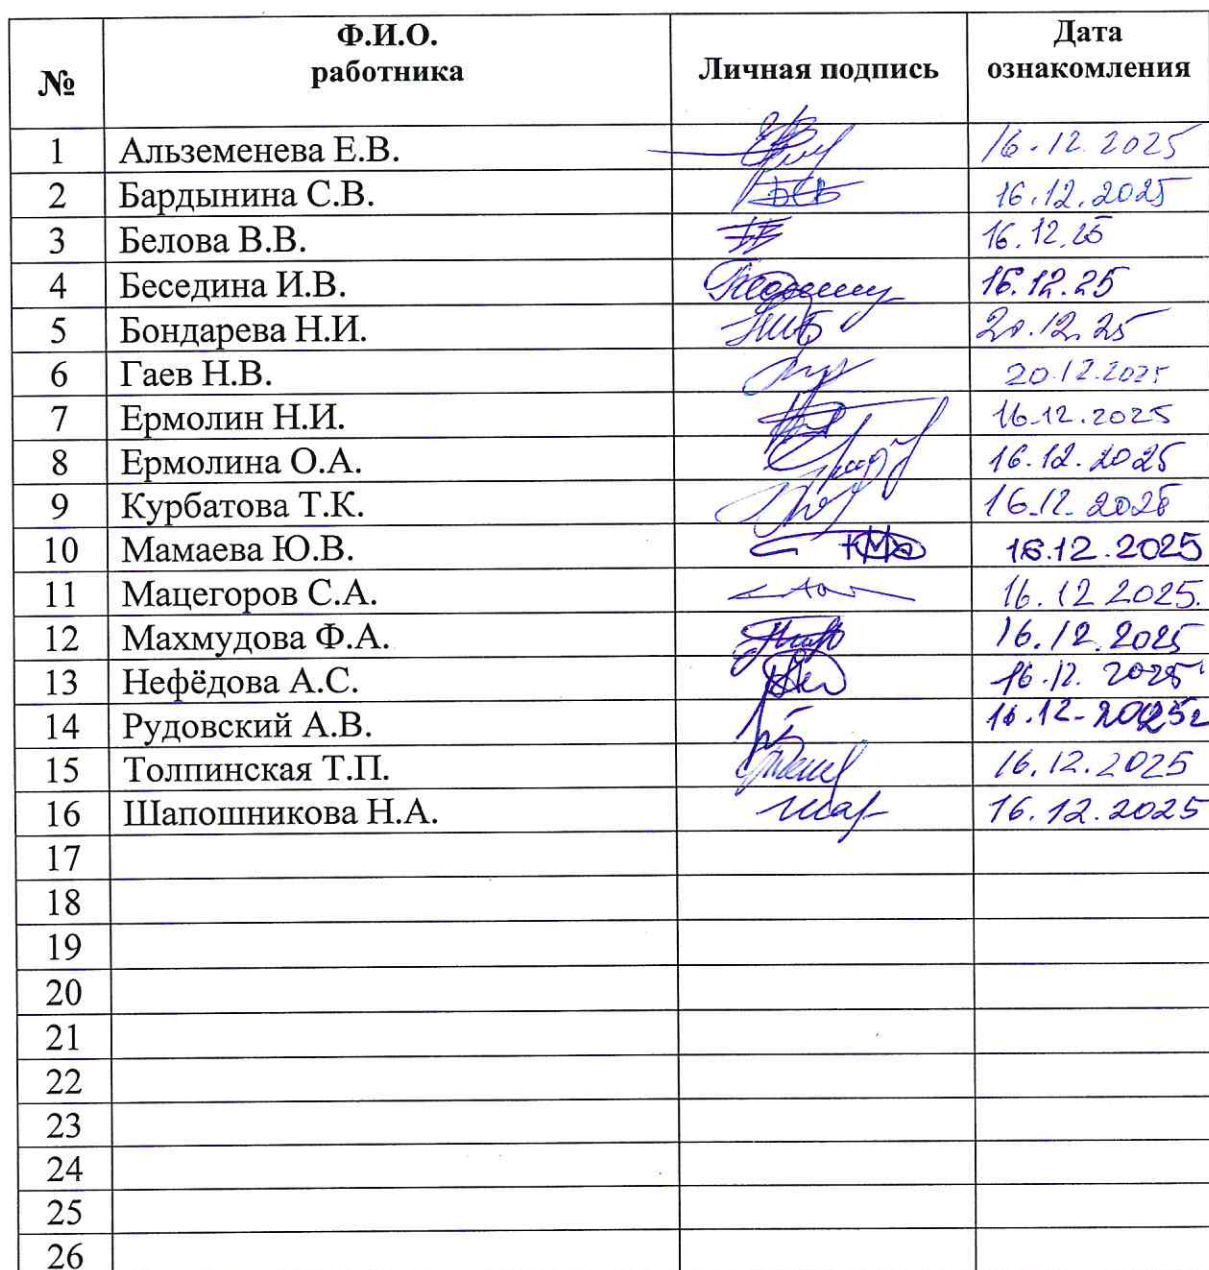 № Ф.И.О. работника Личная подпись Дата ознакомления
1 Альземенева Е.В. 16.12.2025
2 Бардынина С.В. 16.12.2025
3 Белова В.В. 16.12.25
4 Беседина И.В. 16.12.25
5 Бондарева Н.И. 20.12.25
6 Гаев Н.В. 20.12.2025
7 Ермолин Н.И. 16.12.2025
8 Ермолина О.А. 16.12.2025
9 Курбатова Т.К. 16.12.2025
10 Мамаева Ю.В. 16.12.2025
11 Мацегоров С.А. 16.12 2025.
12 Махмудова Ф.А. 16.12.2025
13 Нефёдова А.С. 16.12.2025
14 Рудовский А.В. 16.12-2025г
15 Толпинская Т.П. 16.12.2025
16 Шапошникова Н.А. 16.12.2025
17
18
19
20
21
22
23
24
25
26